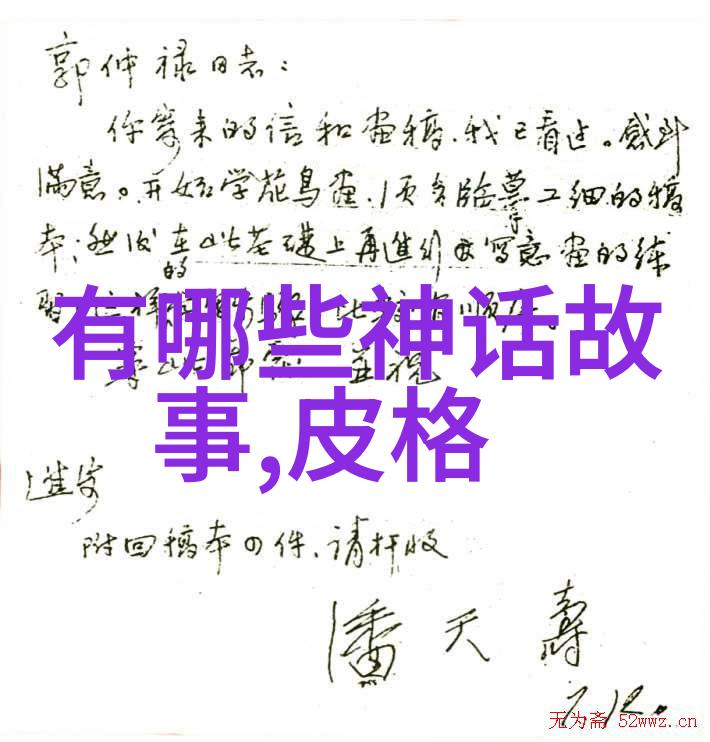 郭仲禄同志：
你寄来的信和画稿，我已看过。感到
满意。开始学花鸟画，须多临摹工细的稿
本；然后在此基础上再进行写意画的练
习
的
有哪些神话故
事,皮格
此 并祝
进安
附回稿本四件，请检收
潘天寿
7.12.
无为斋 52wwz.cn